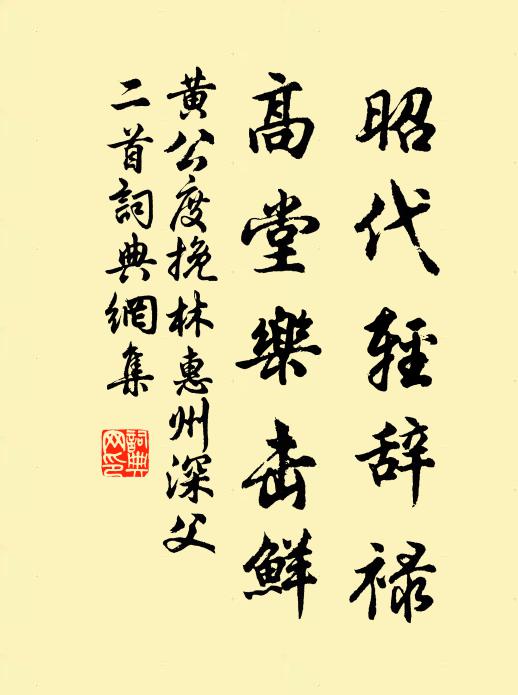 昭代轻辞禄
高堂樂击鲜
黄公度挽林惠州深父
二首詞典網集
詞典网印